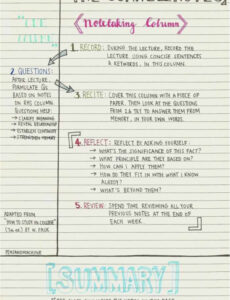 THE CORNELL NOTES
CUE
COLUMN
Notetaking Column
1. RECORD: DURING THE LECTURE, RECORD THE
LECTURE USING CONCISE SENTENCES
& KEYWORDS, IN THIS COLUMN.
2. QUESTIONS:
AFTER LECTURE,
FORMULATE QS
BASED ON NOTES
IN RHS COLUMN.
QUESTIONS HELP:
→ CLARIFY MEANING
→ REVEAL RELATIONSHIP
→ ESTABLISH CONTINUITY
→ STRENGTHEN MEMORY
3. RECITE: COVER THIS COLUMN WITH A PIECE OF
PAPER. THEN LOOK AT THE QUESTIONS
FROM 2 & TRY TO ANSWER THEM FROM
MEMORY, IN YOUR OWN WORDS.
4. REFLECT: REFLECT BY ASKING YOURSELF:
→ WHAT'S THE SIGNIFICANCE OF THIS FACT?
→ WHAT PRINCIPLE ARE THEY BASED ON?
→ HOW CAN I APPLY THEM?
→ HOW DO THEY FIT IN WITH WHAT I KNOW
ALREADY?
→ WHAT'S BEYOND THEM?
5. REVIEW: SPEND TIME REVIEWING ALL YOUR
PREVIOUS NOTES AT THE END OF
EACH WEEK.
ADAPTED FROM
'HOW TO STUDY IN COLLEGE'
BY W. PAUK
[SUMMARY]